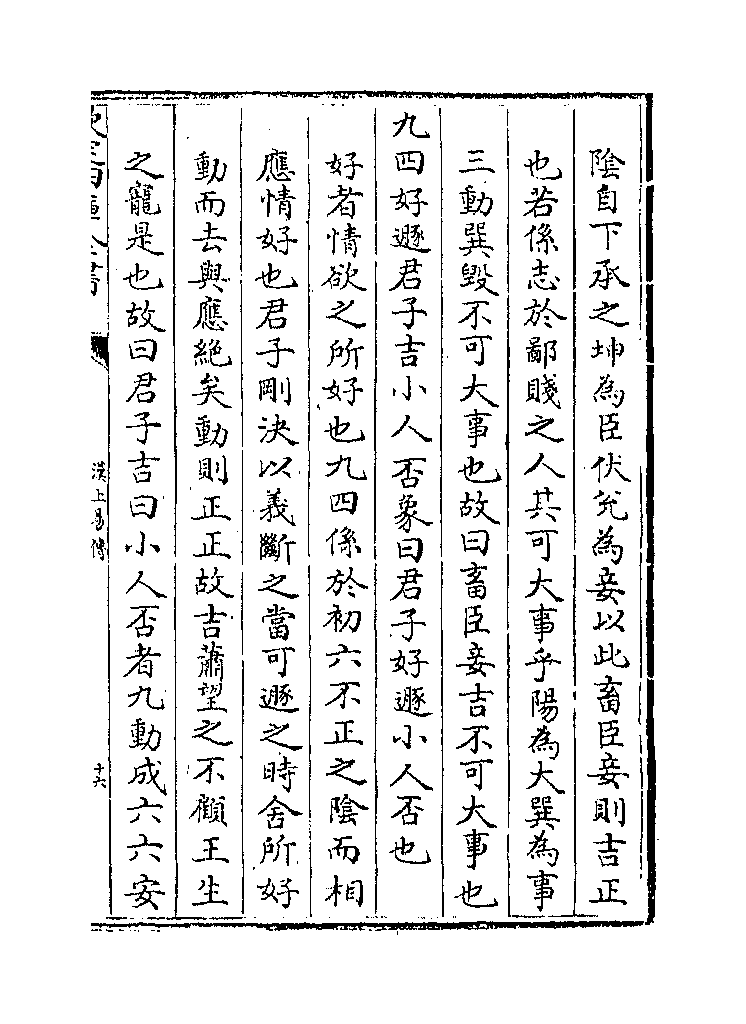 陰自下承之坤為臣伏兊為妾以此畜臣妾則吉正
也若係志於鄙賤之人其可大事乎陽為大巽為事
三動巽毀不可大事也故曰畜臣妾吉不可大事也
九四好遯君子吉小人否象曰君子好遯小人否也
好者情欲之所好也九四係於初六不正之陰而相
應情好也君子剛決以義斷之當可遯之時舍所好
動而去與應絶矣動則正正故吉蕭望之不顧王生
之寵是也故曰君子吉曰小人否者九動成六六安
漢上易傳
十六